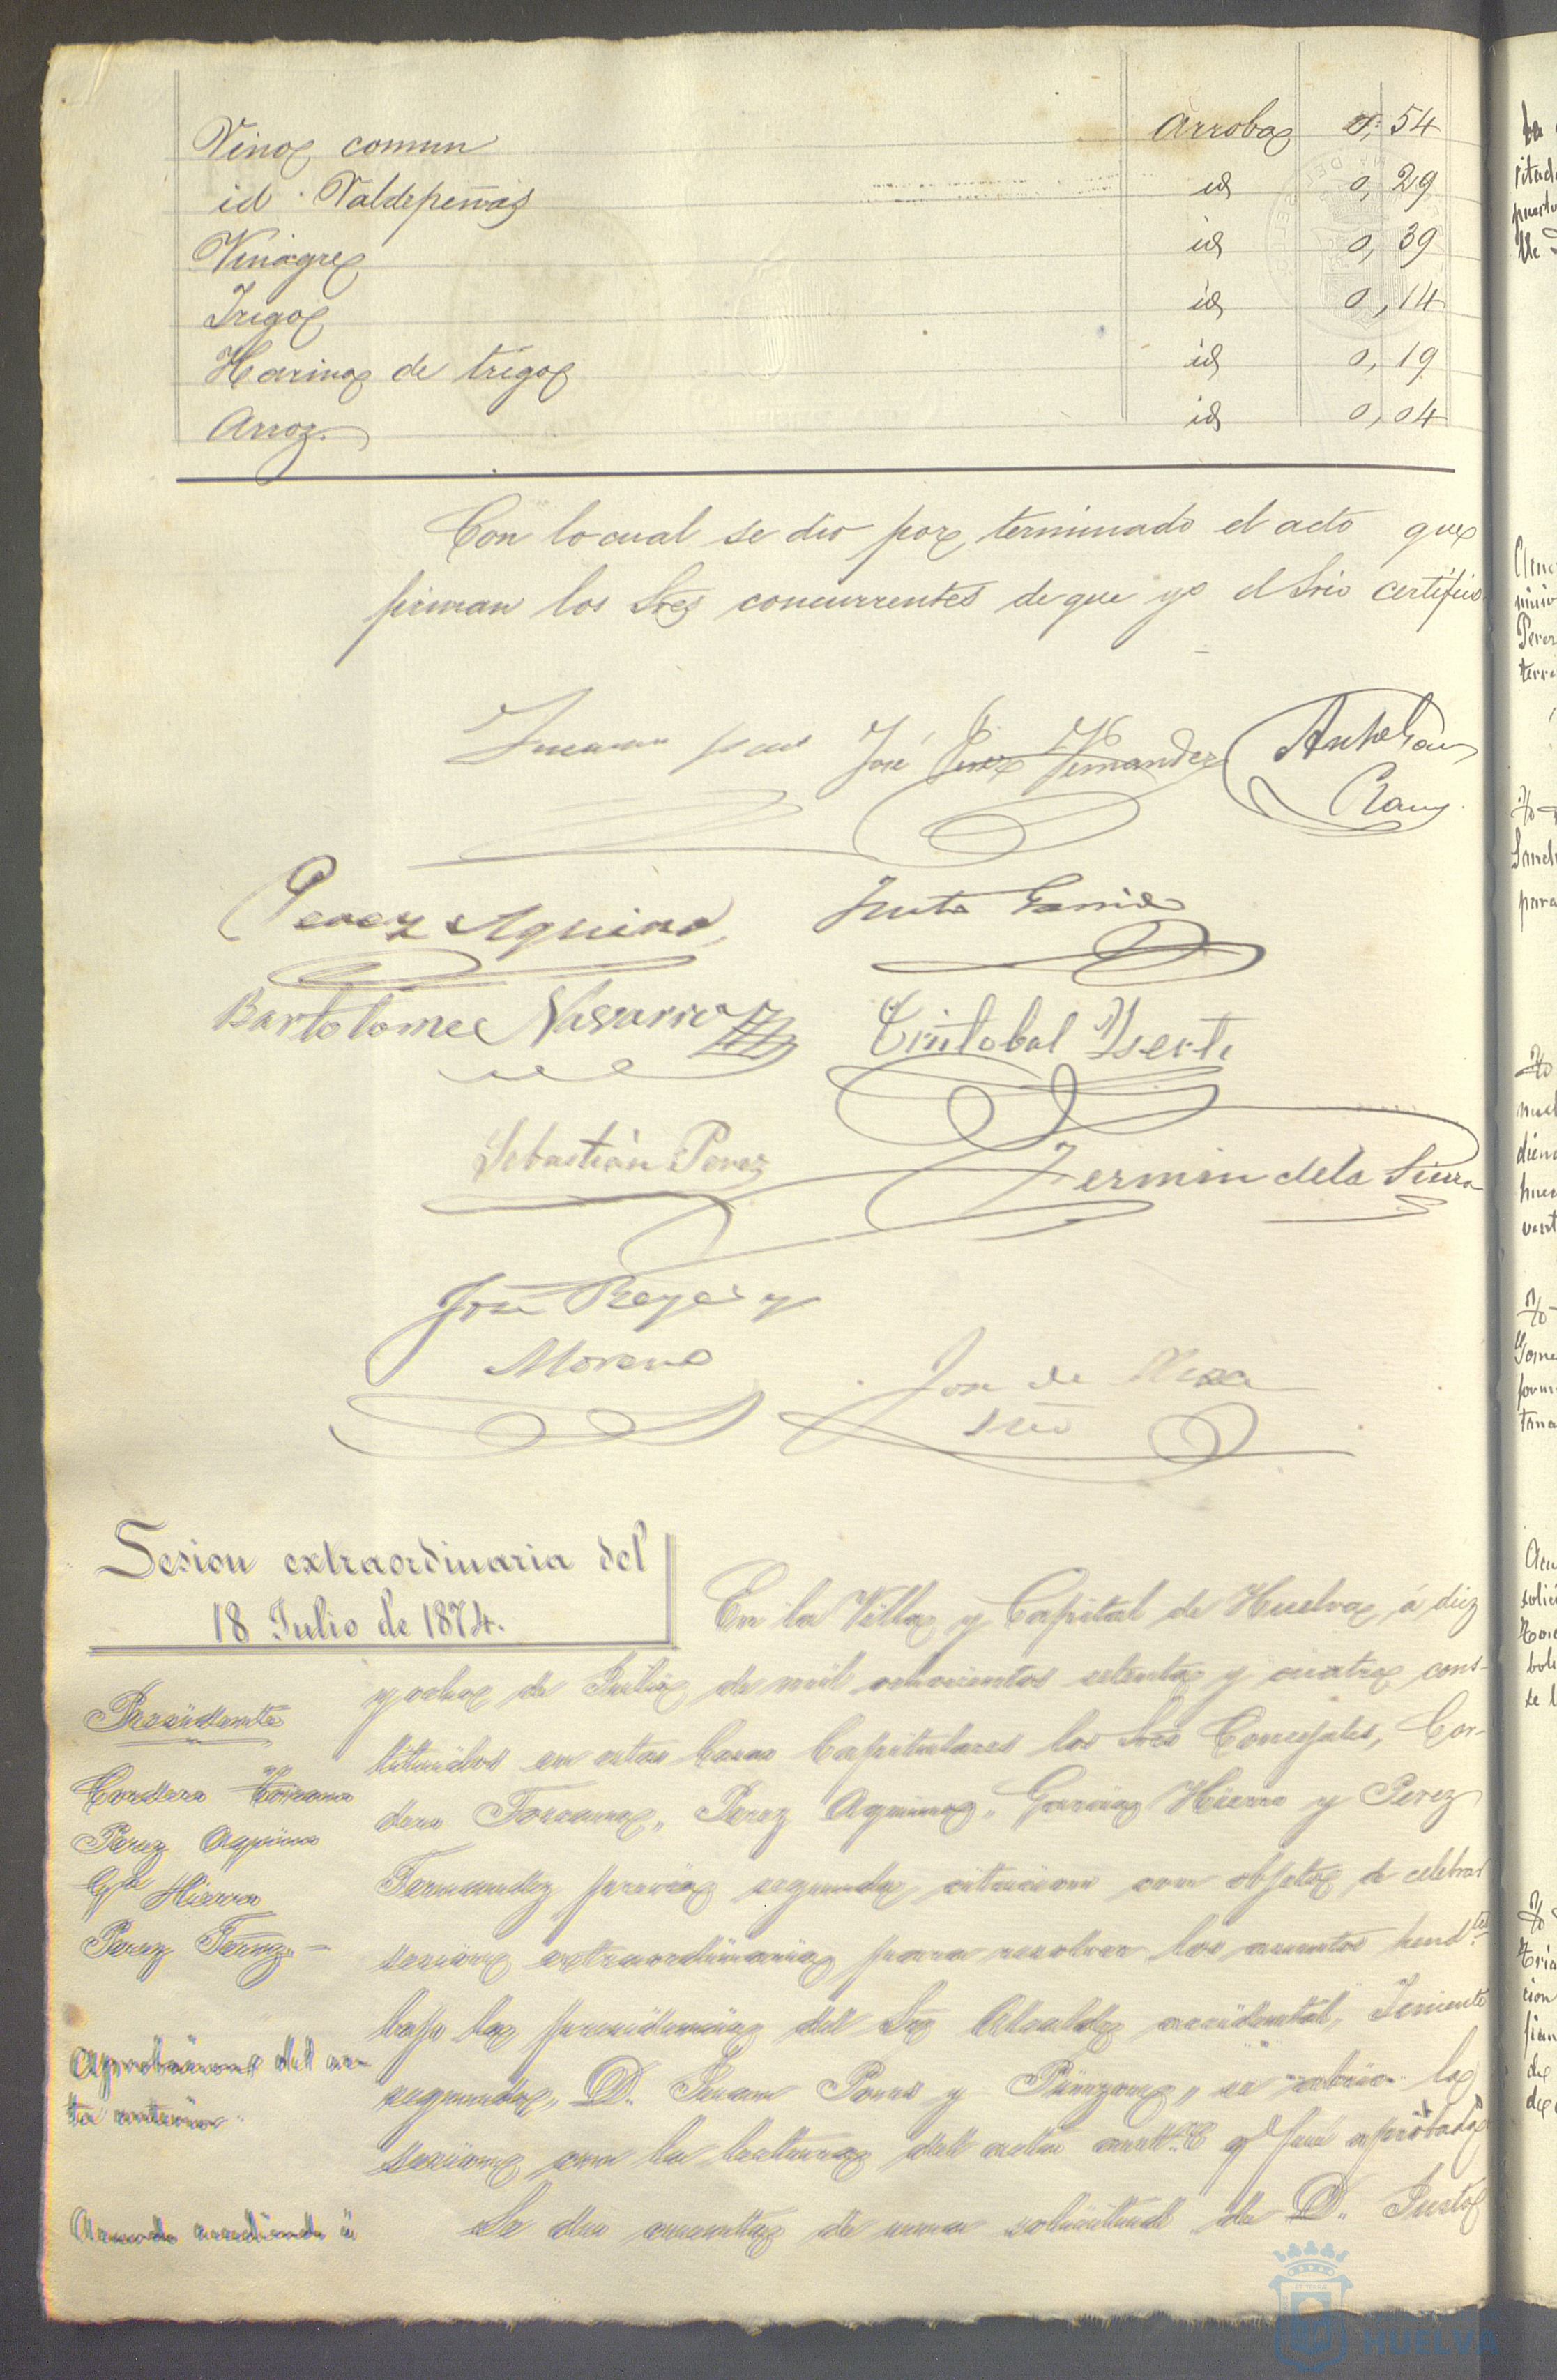 Vino comun arroba 0, 54
id. Valdepeñas id 0, 29
Vinagre id 0, 39
Trigo id 0, 14
Harina de trigo id 0, 19
Arroz. id 0, 04
Con lo cual se dio por terminado el acto que
firman los Sres concurrentes de que yo el Srio certifico.
Juan Pons José Perez Fernandez Anto Garc
Perez Aquino Justo Garrido
Bartolome Navarro Cristobal Yserti
Sebastián Perez
Fermin de la Sierra
José Reyes y
Moreno
José de Meza
Srio
Sesion extraordinaria del
18 Julio de 1874.
En la Villa y Capital de Huelva, á diez
y ocho de Julio de mil ochocientos setenta y cuatro cons-
tituidos en estas Casas Capitulares los Sres Concejales, Cor-
dero Toscano, Perez Aquino, Garcia Hierro y Perez
Fernandez previa segunda citacion con objeto de celebrar
sesion extraordinaria para resolver los asuntos pend.tes
bajo la presidencia del Sr Alcalde accidental, Teniente
segundo, D. Juan Pons y Pinzon, se abrió la
sesion con la lectura del acta ant.r q.e fué aprobada
Se dio cuenta de una solicitud de D. Justo
Presidente
Cordero Toscano
Perez Aquino
Ga Hierro
Perez Fernz.
Aprobacion del ac-
ta anterior
Acuerdo accediendo á
HUELVA